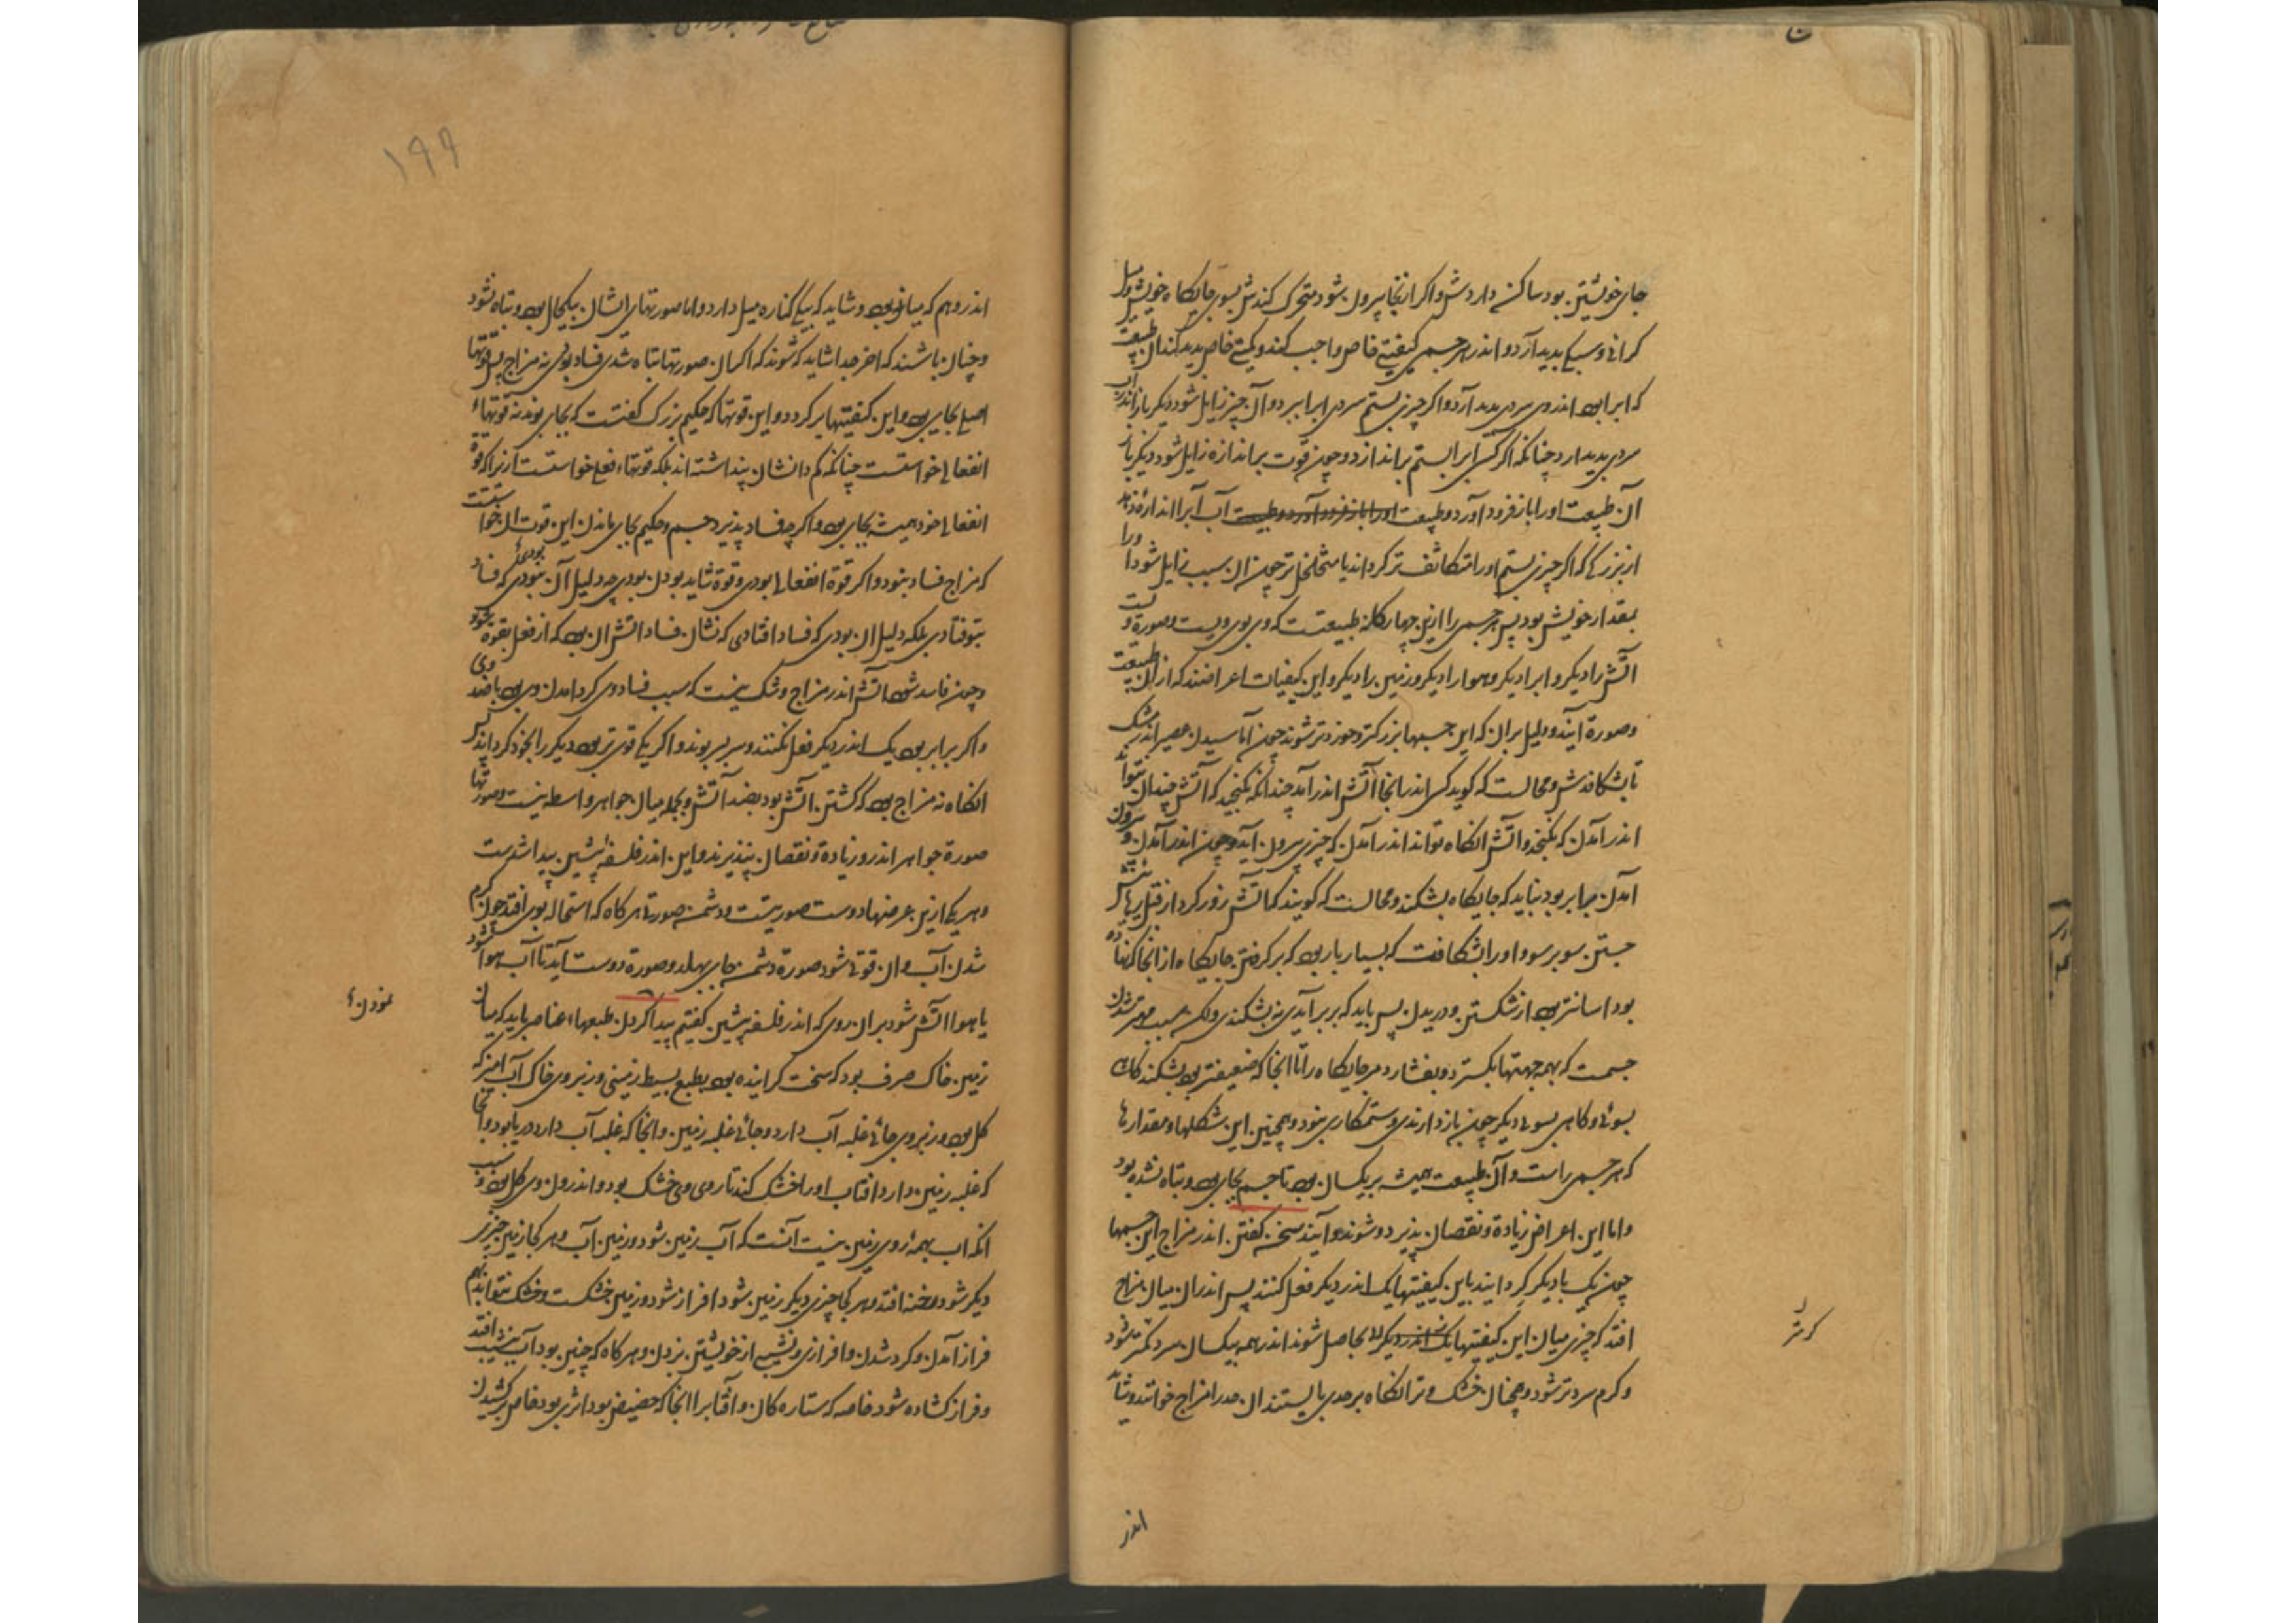 جای خویشتن بود ساکن داردش و اگر ازنجا بیرون شود متحرک کندش بسوی جایگاه خویش و میل
گرانی و سبکی پدید آرد و اندر هر جسمی کیفیتی خاص واجب کند و کمیتی خاص پدید کند آن طبیعت
که ابرا بود اندر وی سردی پدید آرد و اگر چیزی بستم سردی ابرا ببرد و آن چیز زایل شود دیگر باز اندر آب
سردی پدید ارد چنانکه اگر کسی ابرا بستم براندازد و چون قوت براندازه زایل شود دیگر بار
آن طبیعت اورا باز فرود آورد و طبیعت آب آبرا اندازه دهد
از بزرگی که اگر چیزی بستم اورا متکاثف تر گرداند یا متخلخل تر چون ان سبب زایل شود اورا
بمقدار خویش بود پس هر جسمی را ازین چهارگانه طبیعتست که وی بوی ویست و صورة ویست
اتش را دیگر و ابرا دیگر و هوا را دیگر و زمین را دیگر و این کیفیات اعراضند که از آن طبیعت
و صورة آیند و دلیل بران که این جسمها بزرگتر و خوردتر شوند چون آماسیدن عصیر اندر مشک
تا بشکافدش و محالست که گوید کسی اندر انجا آتش اندر آمد چندانکه نگنجید که آتش چندان تواند
اندر آمدن که بگنجد و آتش انگاه تواند اندر آمدن که چیزی بیرون آید و چون اندر آمدن و بیرون
امدن برابر بود نباید که جایگاه بشکند و محالست که گویند که آتش زور کرد از قبل
جستن سوی بر سو و اورا بشکافت که بسیار بار بود که برگرفتن جایگاه از انجا که نهاده
بود اسانتر بود از شکستن و دریدن پس باید که بربرآیدی نه بشکندی ولکن سبب مهتر شدن
جسمست که بهمه جهتها بگسترد و بفشارد مر جایگاه را تا انجا که ضعیفتر بود بشکند گاه
بسوئی و گاهی بسوئی دیگر چون بازدارندی و ستمکاری بنود و همچنین این شکلها و مقدارها
که هر جسمی راست و آن طبیعت همیشه بر یکسان بود تا جسم بجای بود و تباه نشده بود
و اما این اعراض زیادة و نقصان پذیرد و شوند و آیند سخن گفتن اندر مزاج این جسمها
چون یک با دیگر گرد آیند باین کیفیتها یک اندر دیگر فعل کنند پس اندران میان مزاج
افتد که چیزی میان این کیفیتها بحاصل شوند اندر همه بیکسان سرد گرمتر شود
و گرم سردتر شود و همچنان خشک و تر انگاه بر حدی بایستند ان حد را مزاج خوانند و شاید
اندر
۱۹۹
اندر وهم که میانی بود و شاید که بیکی کناره میل دارد و اما صورتهای ایشان بیکحال بود و تباه نشود
و چنان باشند که اخر جدا شاید که شوند که اگر آن صورتها تباه شدی فساد بودی نه مزاج پس قوتها
اصلی بجای بود و این کیفیتها برگردد و این قوتها که حکیم بزرگ گفتست که بجای بوند نه قوتهاء
انفعالی خواستست چنانکه کم دانشان پنداشته اند بلکه قوتهاء فعلی خواستست ازیرا که قوة
انفعالی خود همیشه بجای بود و اگرچه فساد پذیرد جسم و حکیم بجای ماندن این قوت ان خواستست
که مزاج فساد بنود و اگر قوة انفعالی بودی و قوة شاید بودن بودی چه دلیل آن بنودی که فساد
بنوفتادی بلکه دلیل ان بودی که فساد افتادی که نشان فساد اتش ان بود که از فعل بقوه شود
و چون فاسد شود اتش اندر مزاج و شک نیست که سبب فساد وی گرد امدن وی بود با ضد وی
و اگر برابر بود یک اندر دیگر فعل نکنند و سربسر بوند و اگر یکی قوی تر بود دیگر را بخود گرداند
انگاه نه مزاج بود که گشتن اتش بود بضد آتش و بجمله میان جواهر واسطه نیست و صورتها
صورة جواهر اندر وزیادة و نقصان نپذیرند و این اندر فلسفه پیشین پیدا شدست
و هر یکی ازین عرضها دوست صورتیست و دشمن صورتی هر گاه که استحاله بوی افتد چون گرم
شدن آب و ان قوتی شود صورة دشمن جای بهلد و صورة دوست آید تا آب هوا شود
یا هوا اتش شود بران روی که اندر فلسفه پیشین گفتیم پیدا کردن طبعهاء عناصر باید که میان
زمین خاک صرف بود که سخت گراینده بود بطبع بسیط زمینی و زبر وی خاک آب امیز که
گل بود و زبر وی جائی غلبه آب دارد و جائی غلبه زمین و انجا که غلبه آب دارد دریا بود و انجا
که غلبه زمین دارد افتاب اورا خشک کند تا روی وی خشک بود و اندرون وی گل بود و سبب
انکه اب بهمه روی زمین نیست آنست که آب زمین شود و زمین آب و هر کجا زمین چیزی
دیگر شود رخنه افتد و هر کجا چیزی دیگر زمین شود افراز شود و زمین خشکست و خشک نتواند بهم
فراز آمدن و گرد شدن و افرازی و نشیبی از خویشتن بزدن و هر گاه که چنین بود آب بنشیب افتد
و فراز گشاده شود خاصه که ستارگان و آفتابرا انجا که حضیض بود اثری بود خاص برکشیدن
نمودنء